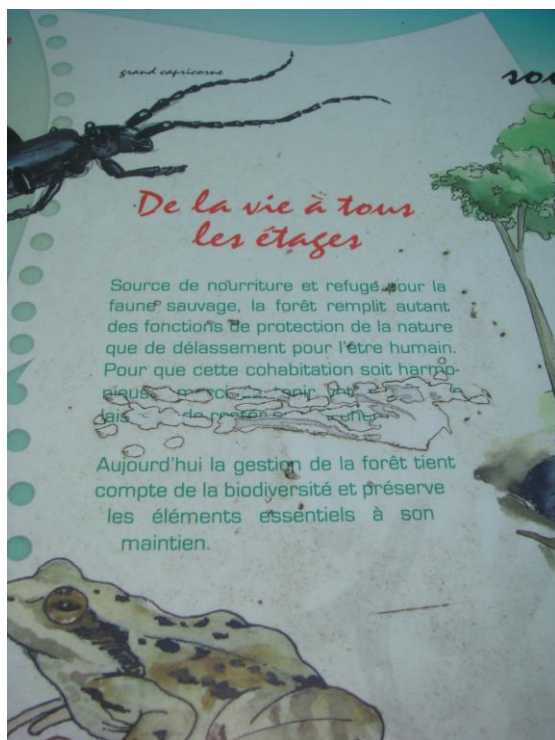 grand capricorne
De la vie à tous
les étages
Source de nourriture et refuge pour la
faune sauvage, la forêt remplit autant
des fonctions de protection de la nature
que de délassement pour l'être humain.
Pour que cette cohabitation soit harmo-
nieuse, merci
de rester
Aujourd'hui la gestion de la forêt tient
compte de la biodiversité et préserve
les éléments essentiels à son
maintien.